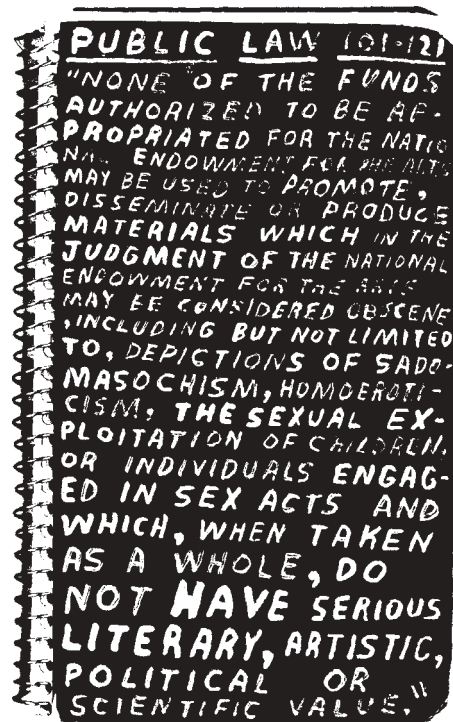 PUBLIC LAW 101-121
"NONE OF THE FUNDS
AUTHORIZED TO BE AP-
PROPRIATED FOR THE NATIO
NAL ENDOWMENT FOR THE ARTS
MAY BE USED TO PROMOTE,
DISSEMINATE OR PRODUCE
MATERIALS WHICH IN THE
JUDGMENT OF THE NATIONAL
ENDOWMENT FOR THE ARTS
MAY BE CONSIDERED OBSCENE
, INCLUDING BUT NOT LIMITED
TO, DEPICTIONS OF SADO-
MASOCHISM, HOMOEROTI-
CISM, THE SEXUAL EX-
PLOITATION OF CHILDREN,
OR INDIVIDUALS ENGAG-
ED IN SEX ACTS AND
WHICH, WHEN TAKEN
AS A WHOLE, DO
NOT HAVE SERIOUS
LITERARY, ARTISTIC,
POLITICAL OR
SCIENTIFIC VALUE."